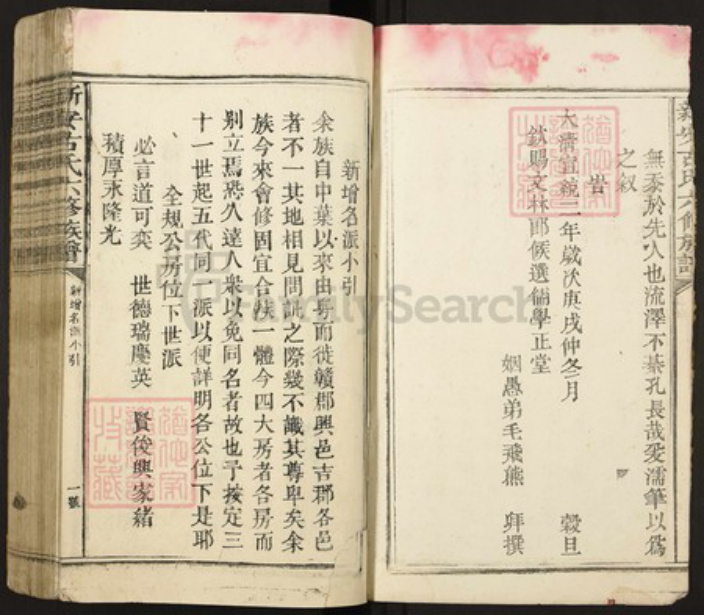 無忝於先人也流澤不綦孔長哉爰濡筆以為
之叙
告
大清宣統二年歲次庚戌仲冬月 穀旦
欽賜文林郎候選儒學正堂
姻愚弟毛飛熊 拜撰
新增名派小引
余族自中葉以來由粵而徙贛郡興邑吉郡各邑
者不一其地相見問訊之際幾不識其尊卑矣余
族今來會修固宜合族一體今四大房者各房而
别立焉恐久遠人衆以免同名者故也予按定三
十一世起五代同一派以便詳明各公位下是耶
全規公房位下世派
必言道可奕 世德瑞慶英 賢俊興家緒
積厚永隆光
新安古氏六修族譜
新增名派小引
一號
FamilySearch